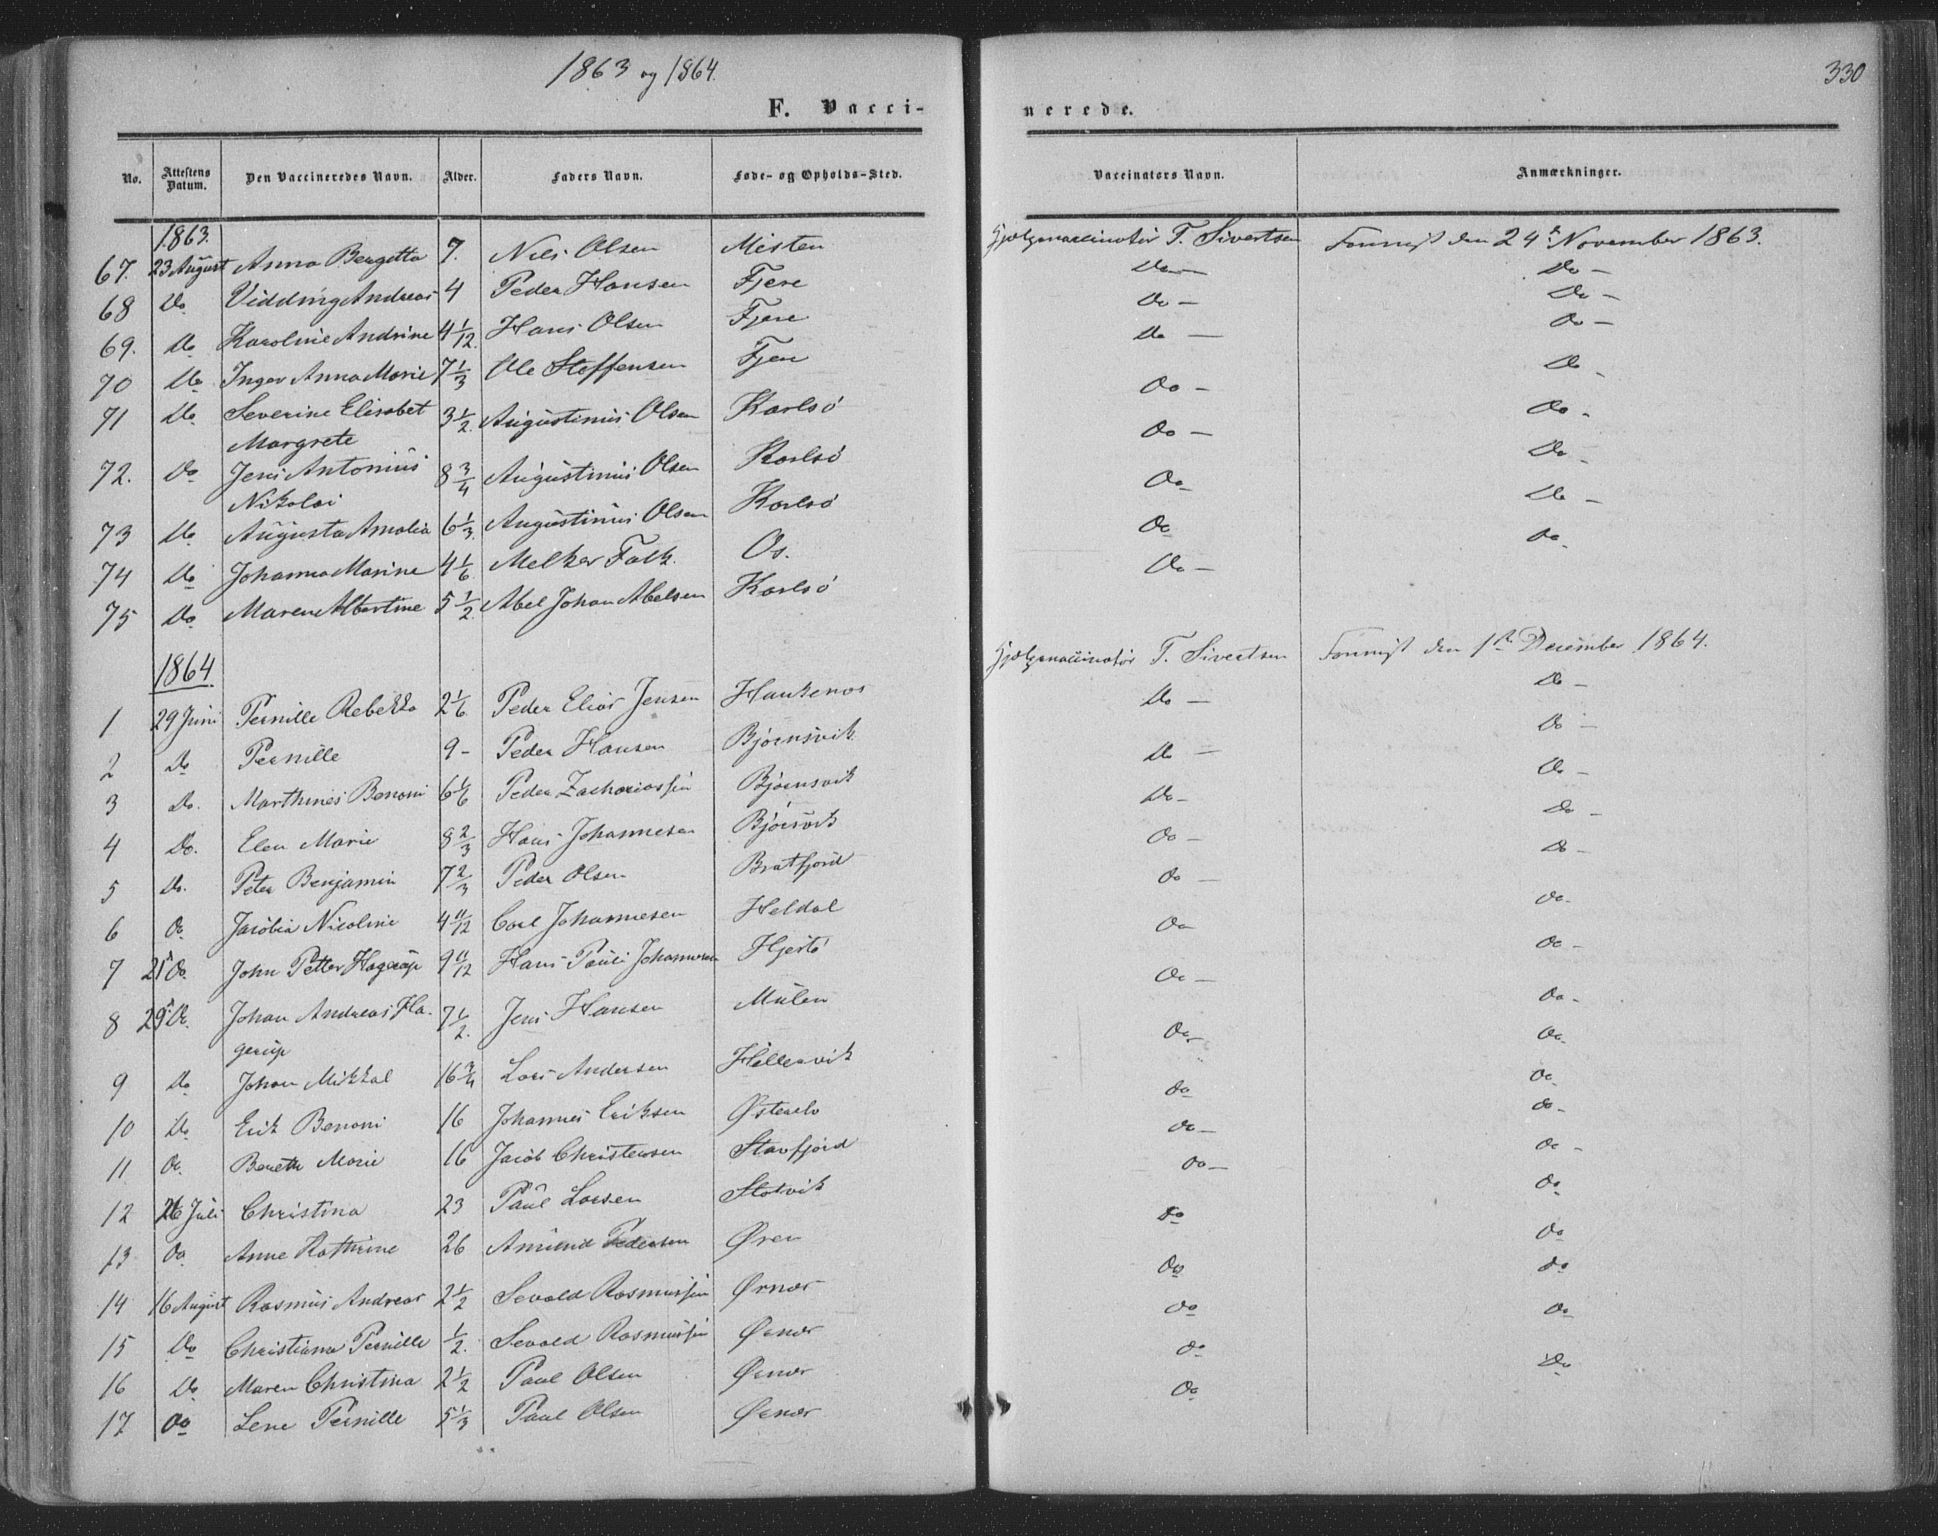 1863 og 1864.
330
F. Vacci-
nerede.
No. Attestens Datum. Den Vaccineredes Navn. Alder. Faders Navn. Føde- og Opholds-Sted. Vaccinators Navn. Anmærkninger.
1863.
67. 23 August Anna Bergitta 7. Nils Olsen Misten Hjælpevaccinatør T. Sivertsen den 24de November 1863.
68 Do Vidding Andreas 4 Peder Hansen Fjere Do — Do —
69. Do Karoline Andrine 4 1/12 Hans Olsen Fjere Do — Do —
70 Do Inger Anna Marie 7 1/3 Ole Steffensen Fjere Do — Do —
71 Do Severine Elisabet 3 1/2 Augustinus Olsen Karlsö Do — Do —
Margrete
72. Do Jens Antonius 8 3/4 Augustinus Olsen Karlsö Do — Do —
Nikolai
73 Do Augusta Amalia 6 1/3 Augustinus Olsen Karlsö Do Do —
74 Do Johanna Marine 4 1/6 Melker Falk. Os. Do Do —
75 Do Maren Albertine 5 1/2 Abel Johan Abelsen Karlsö Do — Do
1864
1 29 Juni Pernille Rebekka 2 1/6 Peder Elias Jensen Haukenes Hjælpevaccinatør T. Sivertsen den 1ste December 1864.
2 Do Pernille 9 - Peder Hansen Bjørnsvik Do — Do —
3 Do. Marthines Benoni 6 1/6 Peder Zachariassen Bjørnsvik Do — Do —
4 Do. Elen Marie 8 2/3 Hans Johannesen Bjørsvik Do — Do —
5 Do. Peter Benjamin 7 2/3 Peder Olsen Bratfjord Do — Do —
6 Do Jacobia Nicoline 4 11/12 Carl Johannesen Heldal Do — Do —
7 Do John Petter Hagerup 9 11/12 Hans Pauli Johannesen Hjertö Do Do.
8 Do. Johan Andreas Ha- 7 1/2. Jens Hansen Mulen Do — Do —
gerup
9 Do Johan Mikkal 16 3/4 Lars Andersen Hellesvik Do Do —
10 Do Erik Benoni 16 Johannes Eriksen Do Do
11 Do. Bereth Marie 16 Jacob Christensen Stavfjord Do — Do
12 26 Juli Christina 23 Paul Larsen Slotvik Do — Do —
13 Do Anne Kathrine 26 Amund Pedersen Øren Do Do —
14 16 August Rasmus Andreas 2 1/2 Sevald Rasmussen Ørnær Do Do
15 Do Christiana Pernille 1/2. Sevald Rasmussen Ørnær Do Do
16 Do Maren Christina 2 1/2 Paul Olsen Ørnær Do Do
17 Do Lene Pernille 5 1/3 Paul Olsen Ørnær Do Do